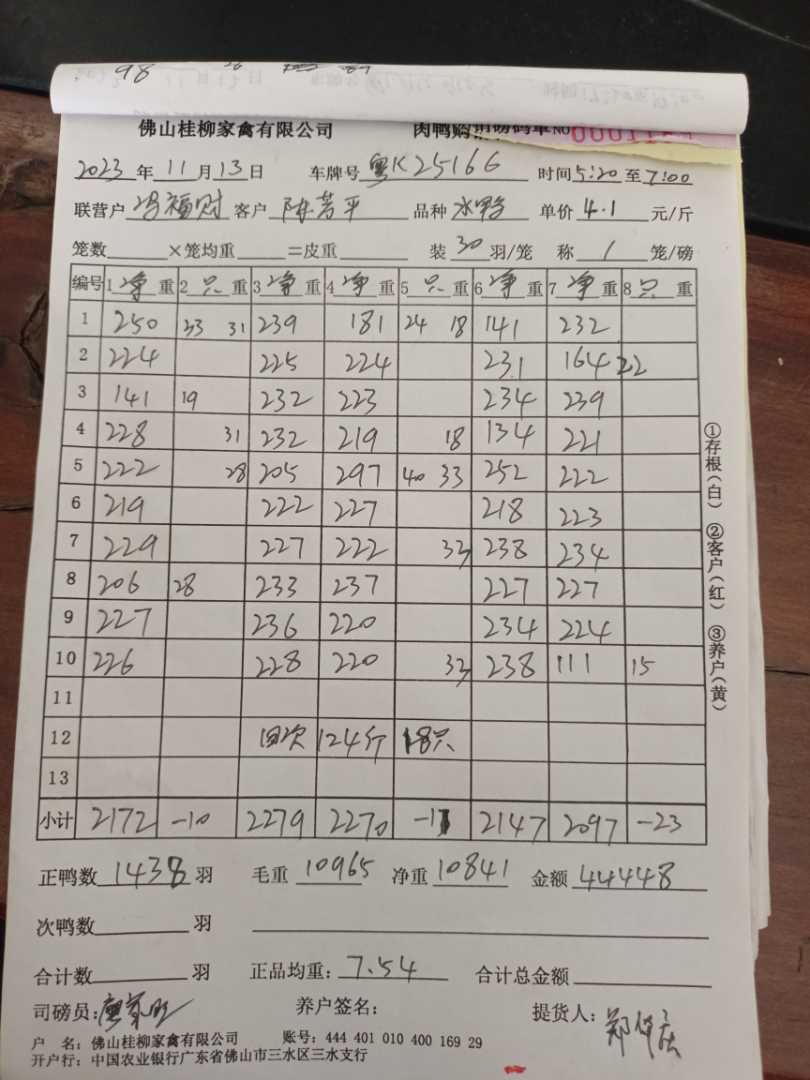 98
佛山桂柳家禽有限公司 肉鸭购销磅码单 NO
2023 年 11 月 13 日 车牌号 粤K25166 时间 5:20 至 7:00
联营户 冯福财 客户 陈芳平 品种 水鸭 单价 4.1 元/斤
笼数 ×笼均重 =皮重 装 30 羽/笼 称 1 笼/磅
编号 1 净 重 2 只 重 3 净 重 4 净 重 5 只 重 6 净 重 7 净 重 8 只 重
1 250 33 31 239 181 24 18 141 232
2 224 225 224 231 164 22
3 141 19 232 223 234 239
4 228 31 232 219 18 134 221
5 222 28 205 297 40 33 252 222
6 219 222 227 218 223
7 229 227 222 33 238 234
8 206 28 233 237 227 227
9 227 236 220 234 224
10 226 228 220 33 238 111 15
11
12 回次 124斤 18只
13
小计 2172 -10 2279 2270 2147 2097 -23
正鸭数 1438 羽 毛重 10965 净重 10841 金额 44448
次鸭数 羽
合计数 羽 正品均重: 7.54 合计总金额
司磅员: 养户签名: 提货人:
户 名: 佛山桂柳家禽有限公司 账号: 444 401 010 400 169 29
开户行: 中国农业银行广东省佛山市三水区三水支行
①存根(白) ②客户(红) ③养户(黄)